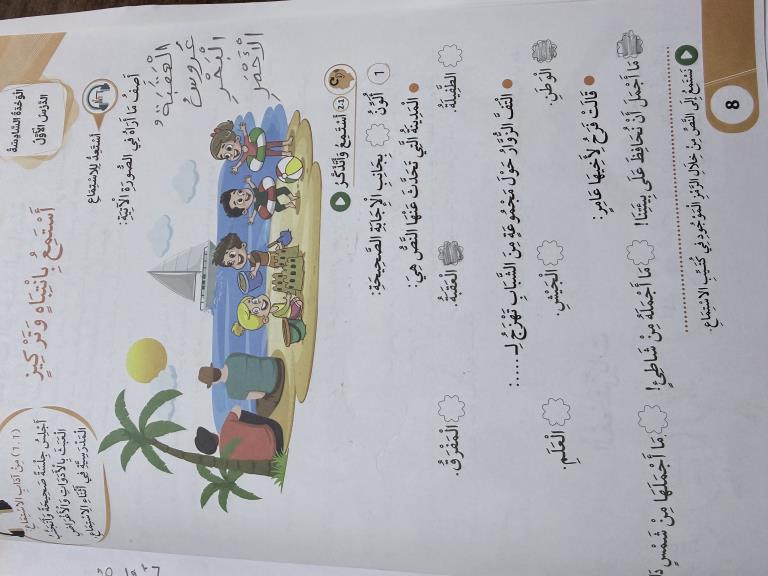 الْوَحْدَةُ السَّادِسَةُ
الدَّرْسُ الْأَوَّلُ
أَسْتَمِعُ بِانْتِبَاهٍ وَتَرْكِيزٍ
(1.1) مِنْ آدَابِ الِاسْتِمَاعِ:
أَجْلِسُ جِلْسَةً صَحِيحَةً وَأَتَجَنَّبُ
الْعَبَثَ بِالْأَدَوَاتِ وَالْأَغْرَاضِ
الْمَدْرَسِيَّةِ فِي أَثْنَاءِ الِاسْتِمَاعِ.
أَسْتَعِدُّ لِلِاسْتِمَاعِ
أَصِفُ مَا أَرَاهُ فِي الصُّورَةِ الْآتِيَةِ:
الْعَقَبَة
عَرُوسُ
الْبَحْرِ
الْأَحْمَرِ
2.1 أَسْتَمِعُ وَأَتَذَكَّرُ
1 أُلَوِّنُ بِجَانِبِ الْإِجَابَةِ الصَّحِيحَةِ:
الْمَدِينَةُ الَّتِي تَحَدَّثَ عَنْهَا النَّصُّ هِيَ:
الطَّفِيلَةُ. الْعَقَبَةُ. الْمَفْرَقُ.
الْتَفَّ الزُّوَّارُ حَوْلَ مَجْمُوعَةٍ مِنَ الشَّبَابِ تَهْزَجُ لِـ......:
الْوَطَنِ. الْجَيْشِ. الْعَلَمِ.
قَالَتْ فَرَحُ لِأَخِيهَا عَامِرٍ:
مَا أَجْمَلَ أَنْ نُحَافِظَ عَلَى بِيئَتِنَا! مَا أَجْمَلَهُ مِنْ شَاطِئٍ! مَا أَجْمَلَهَا مِنْ شَمْسٍ
نَسْتَمِعُ إِلَى النَّصِّ مِنْ خِلَالِ الرَّمْزِ الْمَوْجُودِ فِي كُتَيِّبِ الِاسْتِمَاعِ.
8